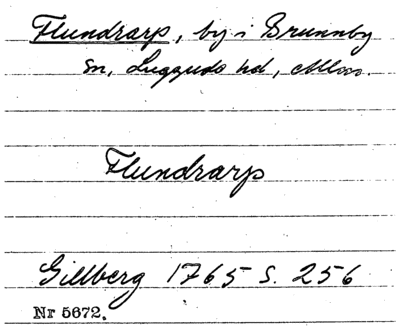 Flundrarp, by i Brunnby
sn, Luggude hd, Mlm.
Flundrarp
Gillberg 1765 s. 256
Nr 5672.